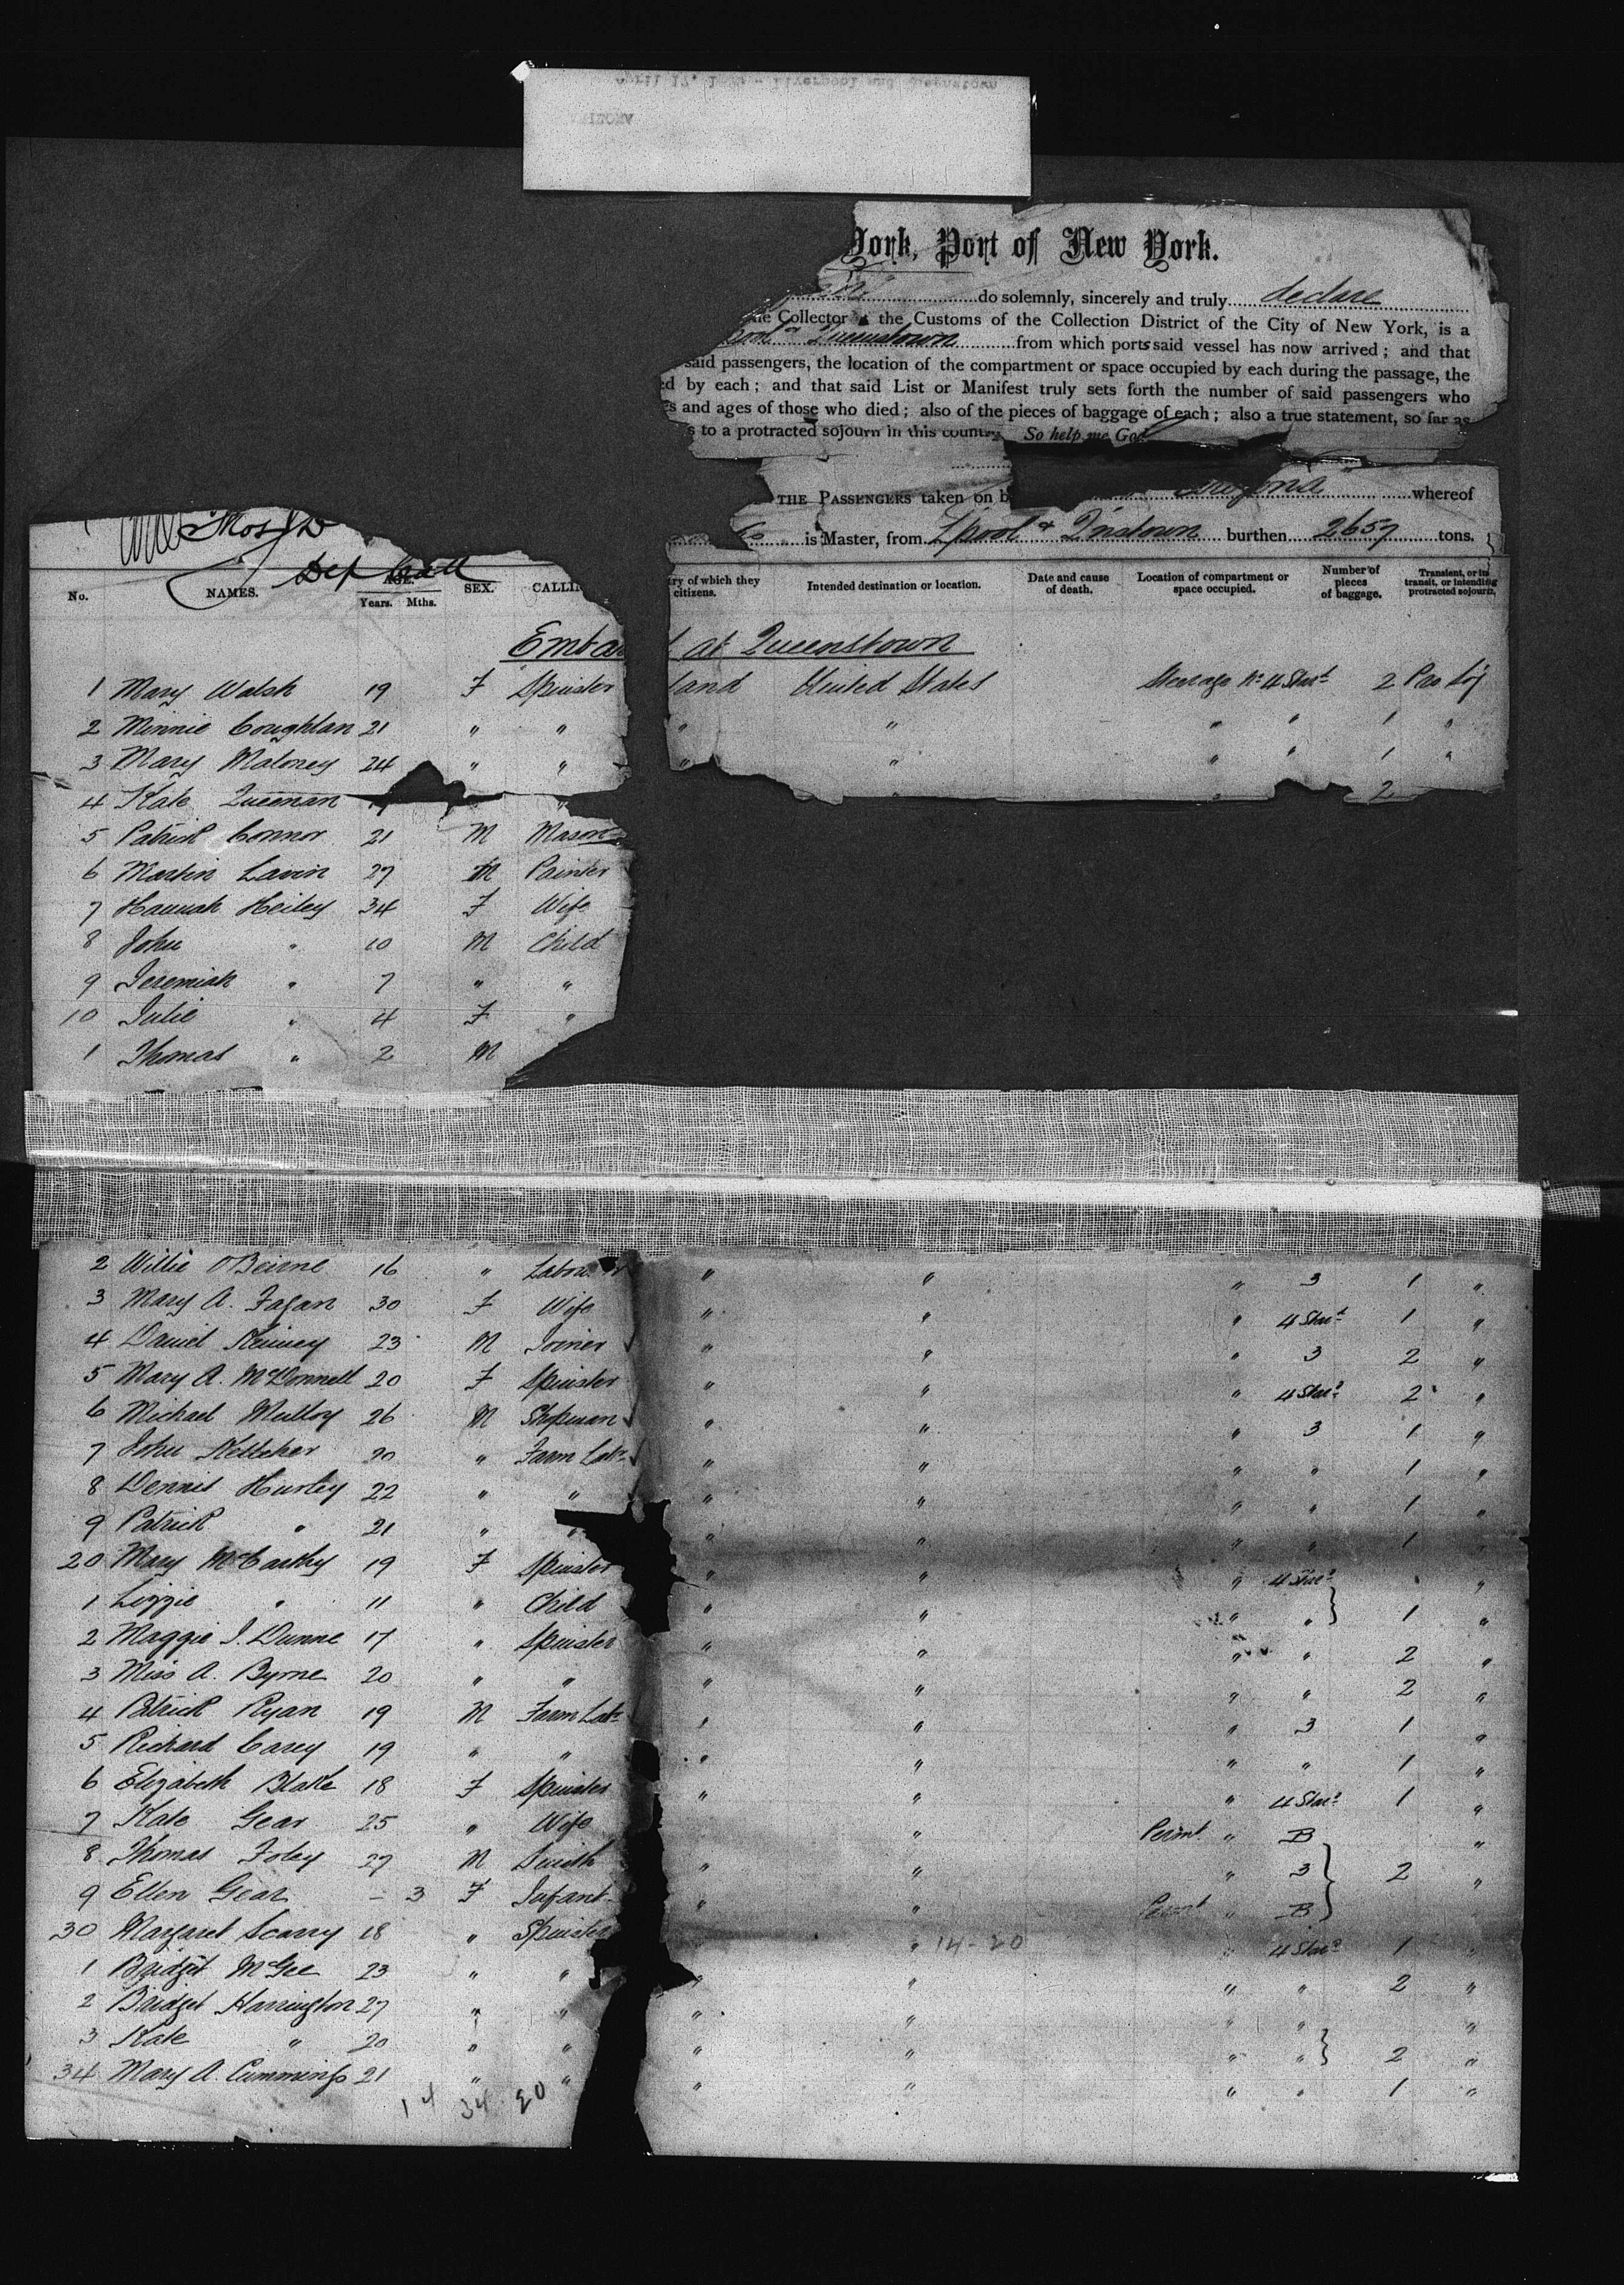 York, Port of New York.
do solemnly, sincerely and truly declare
the Collector of the Customs of the Collection District of the City of New York, is a
Queenstown from which ports said vessel has now arrived; and that
said passengers, the location of the compartment or space occupied by each during the passage, the
ed by each; and that said List or Manifest truly sets forth the number of said passengers who
s and ages of those who died; also of the pieces of baggage of each; also a true statement, so far as
s to a protracted sojourn in this country. So help me God
THE PASSENGERS taken on b Arizona whereof
is Master, from L'pool & Q'nstown burthen 2657 tons.
Dep Coll
No. NAMES. AGE. Years. Mths. SEX. CALLIN try of which they citizens. Intended destination or location. Date and cause of death. Location of compartment or space occupied. Number of pieces of baggage. Transient, or in transit, or intending protracted sojourn.
Embar d at Queenstown
1 Mary Walsh 19 F Spinster land United States Steerage No 4 Star 2 Pro Soj
2 Minnie Coughlan 21 " " " " " " 1 "
3 Mary Maloney 24 " " " " " " 1 "
4 Kate Queenan " " " 2
5 Patrick Connor 21 M Mason
6 Martin Lavin 27 M Painter
7 Hannah Heiley 34 F Wife
8 John " 10 M Child
9 Jeremiah " 7 " "
10 Julie " 4 F "
1 Thomas " 2 M
2 Willie OBeirne 16 " Labourer " " " 3 1 "
3 Mary A. Fagan 30 F Wife " " " 4 Star 1 "
4 Daniel Kenney 23 M Joiner " " " 3 2 "
5 Mary A. McDonnell 20 F Spinster " " " 4 Star 2 "
6 Michael Mulloy 26 M Shopman " " " 3 1 "
7 John Kelleher 20 " Farm Lab " " " " 1 "
8 Dennis Hurley 22 " " " " " " 1 "
9 Patrick " 21 " " " " " " 1 "
20 Mary McCarthy 19 F Spinster " " " 4 Star "
1 Lizzie " 11 " Child " " " " 1 "
2 Maggie J. Dunne 17 " Spinster " " " " 2 "
3 Miss A. Byrne 20 " " " " " " 2 "
4 Patrick Ryan 19 M Farm Lab " " " 3 1 "
5 Richard Carey 19 " " " " " " 1 "
6 Elizabeth Blake 18 F Spinster " " " 4 Star 1 "
7 Kate Gear 25 " Wife " Permt. " B "
8 Thomas Foley 27 M Smith " " " 3 2 "
9 Ellen Gear - 3 F Infant " " Permt " B
30 Margaret Scarry 18 " Spinster " 14-20 " 4 Star 1 "
1 Bridget McGee 23 " " " " " " 2 "
2 Bridget Harrington 27 " " " " " " "
3 Kate " 20 " " " " " " 2 "
34 Mary A. Cummings 21 " " " " " " 1 "
14 34 20